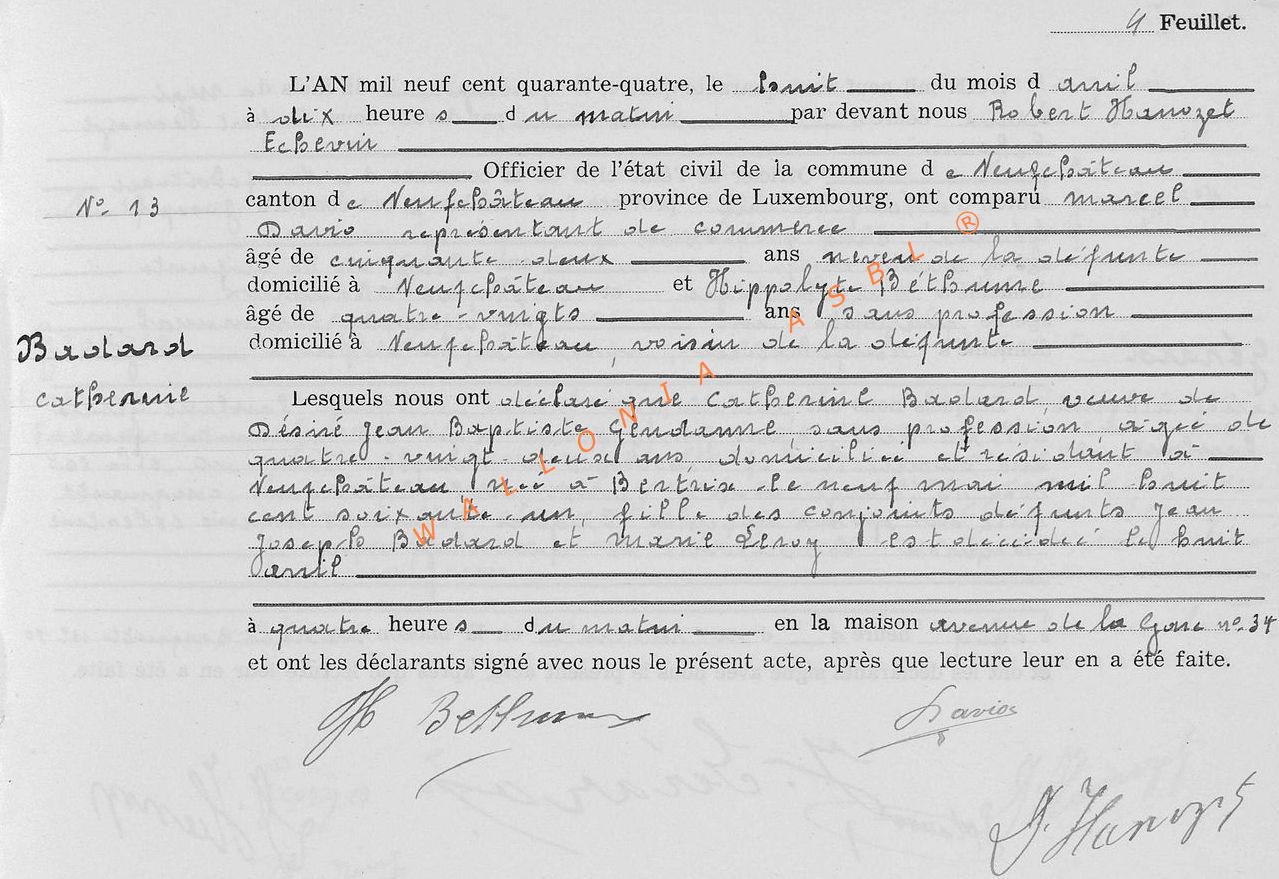 4 Feuillet.
L'AN mil neuf cent quarante-quatre, le huit du mois d avril
à dix heure s d u matin par devant nous Robert Hanozet
Echevin
Officier de l'état civil de la commune d e Neufchâteau
N° 13
canton d e Neufchâteau province de Luxembourg, ont comparu Marcel
Davio représentant de commerce
âgé de cinquante deux ans neveu de la défunte
domicilié à Neufchâteau et Hippolyte Béthume
âgé de quatre-vingts ans sans profession
domicilié à Neufchâteau, voisin de la défunte
Badard
Catherine
Lesquels nous ont déclaré que Catherine Badard, veuve de
Désiré Jean Baptiste sans profession, âgée de
quatre-vingt-deux ans, domiciliée et résidant à
Neufchâteau, née à Bertrix le neuf mai mil huit
cent soixante-un, fille des conjoints défunts Jean
Joseph Badard et Marie Leroy est décédée le huit
avril
à quatre heure s d u matin en la maison avenue de la Gare n° 34
et ont les déclarants signé avec nous le présent acte, après que lecture leur en a été faite.
Davio
Hanozet
WALLONIA ASBL ®